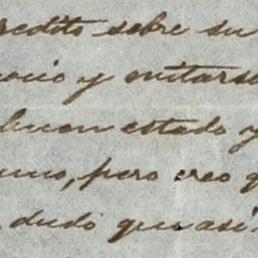 redito sobre su
ocio y evitarse
buen estado y
uno, pero creo q
dudo que asi